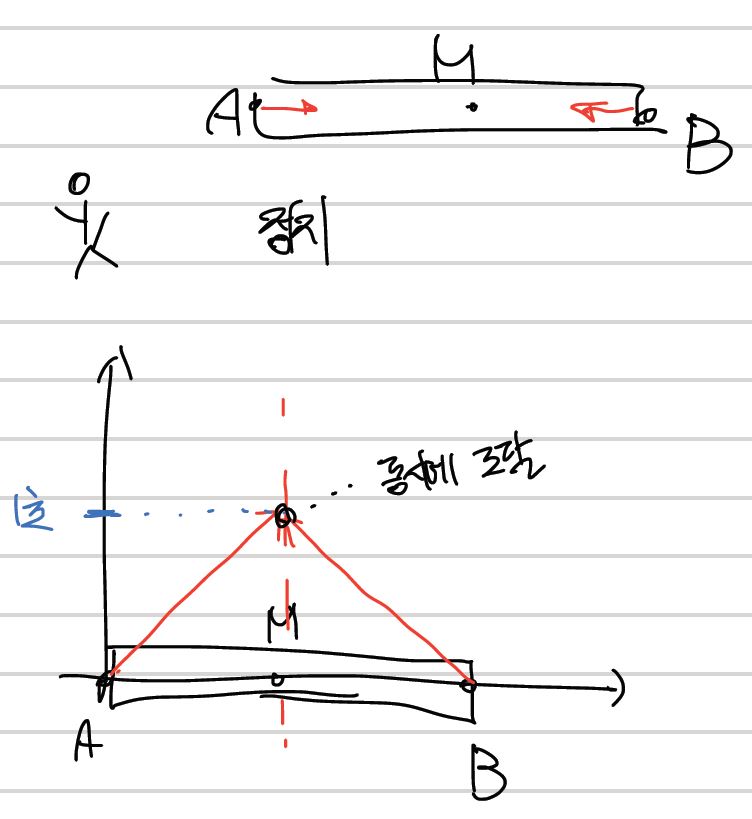 M
A
B
정지
동시에 도달
1초
M
A
B